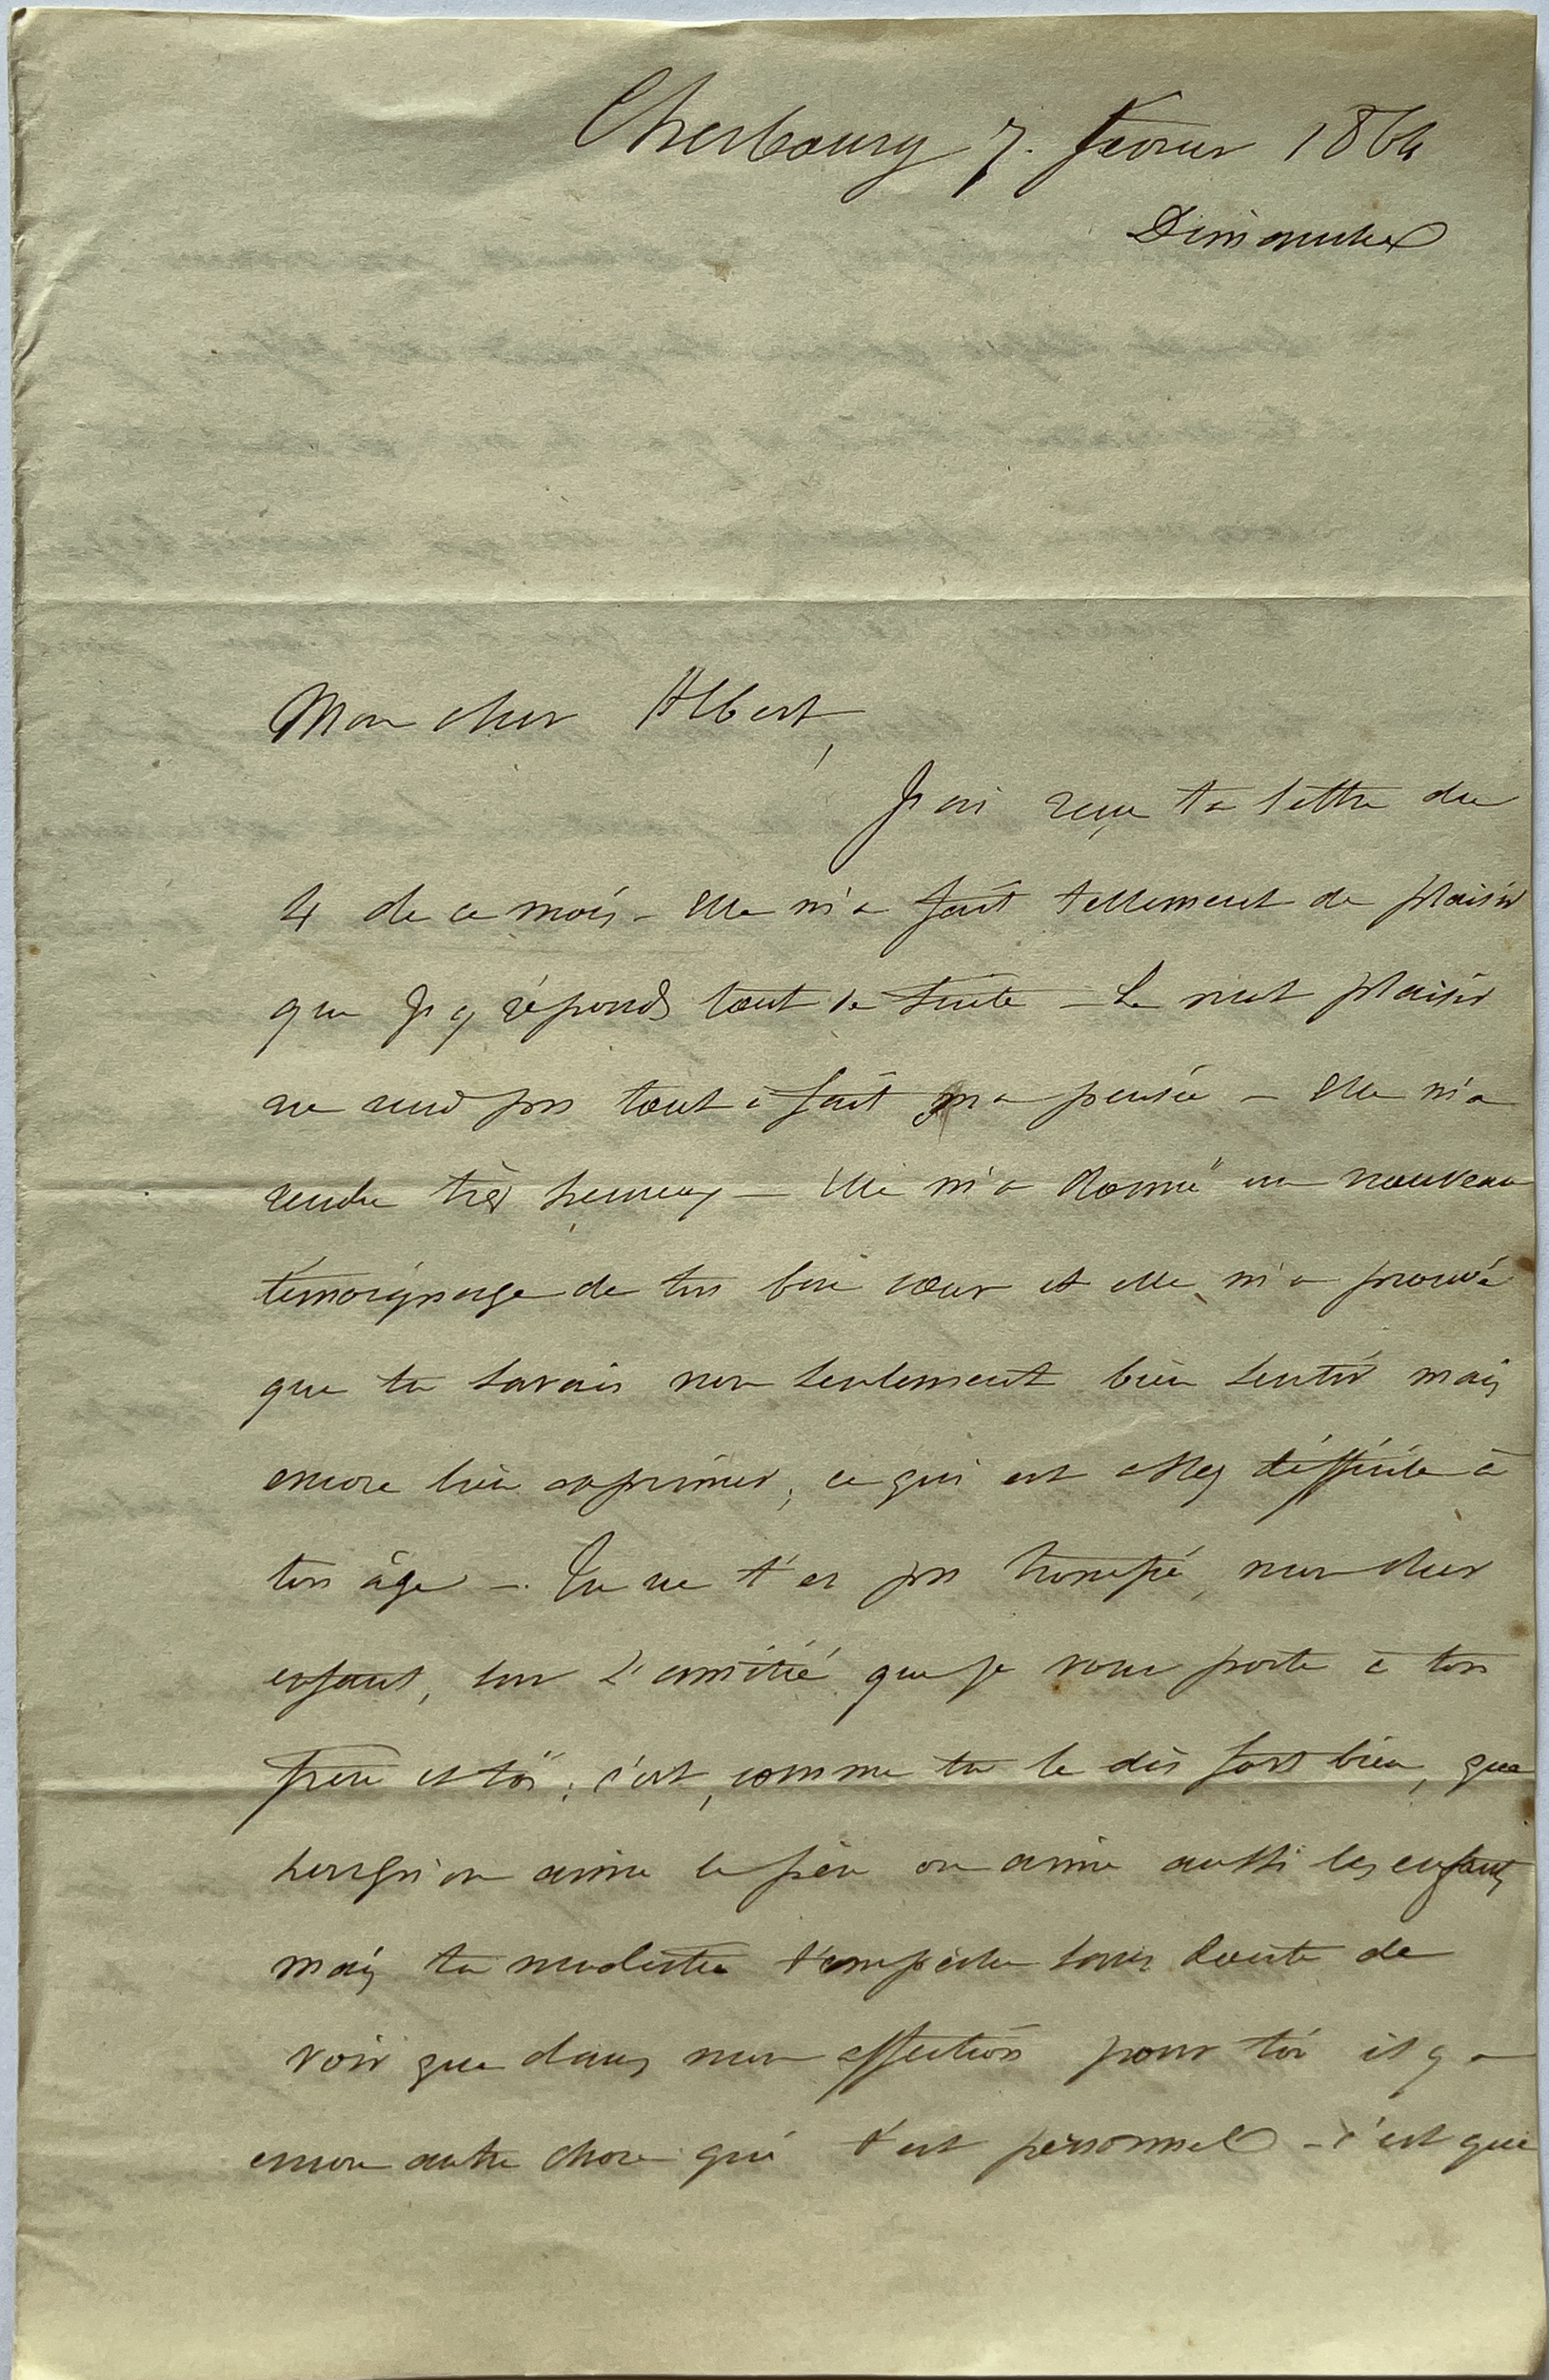 Cherbourg 7. février 1864
Dimanche
Mon cher Albert,
J'ai reçu ta lettre du
4 de ce mois - Elle m'a fait tellement de plaisir
que j'y réponds tout de suite - Le mot plaisir
ne rend pas tout à fait ma pensée - Elle m'a
rendu très heureux - Elle m'a donné un nouveau
témoignage de ton bon cœur et elle m'a prouvé
que tu savais non seulement bien sentir mais
encore bien exprimer, ce qui est assez difficile à
ton âge -. Tu ne t'es pas trompé, mon cher
enfant, sur l'amitié que je vous porte à ton
frère et toi ; c'est, comme tu le dis fort bien, que
lorsqu'on aime le père on aime aussi les enfants
mais ta modestie t'empêche sans doute de
voir que dans mon affection pour toi il y a
encore autre chose qui t'est personnel - c'est que